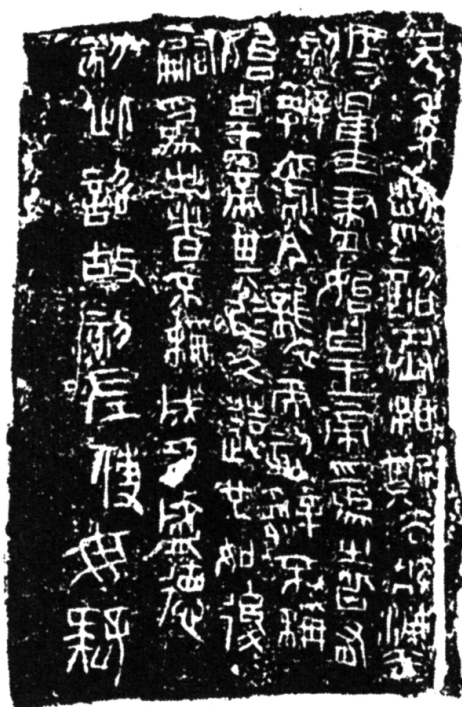 元年制詔丞相斯去疾灋
度量盡始皇帝爲之皆有
刻辭焉今襲號而刻辭不稱
始皇帝其於久遠也如後
嗣爲之者不稱成功盛德
刻此詔故刻左使毋疑